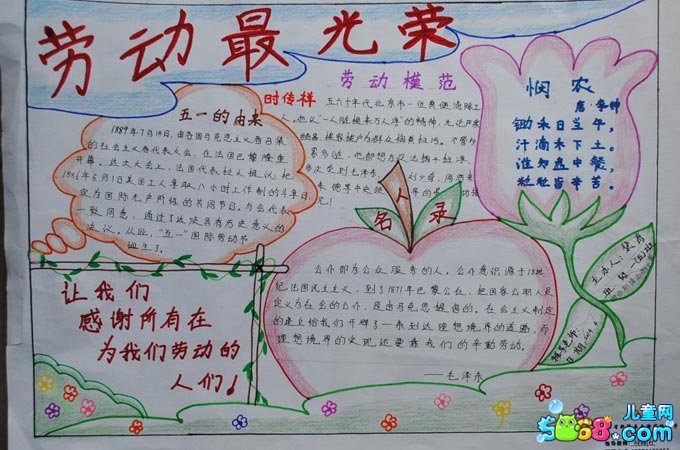 劳动最光荣
五一的由来
1889年7月14日,由各国马克思主义者召集
的社会主义者代表大会,在法国巴黎隆重
开幕。这次大会上,法国代表拉文提议:把
1886年5月1日美国工人争取八小时工作制的斗争日,
定为国际无产阶级的共同节日。与会代表
一致同意,通过了这项具有历史意义的
决议。从此,“五一”国际劳动节
诞生了。
劳动模范
时传祥
五六十年代北京市一位粪便清除工
人。他以“一人脏换来万人净”的精神,无论严寒
悯农
唐·李绅
锄禾日当午,
汗滴禾下土。
谁知盘中餐,
粒粒皆辛苦。
名人录
公仆即为公众服务的人。公仆意识源于18世
纪法国民主主义,到了1871年巴黎公社,把国家公职人员
定义为社会的公仆,是由马克思提倡的。在社会主义制度
的建立给我们开辟了一条到达理想境界的道路,而
理想境界的实现还要靠我们的辛勤劳动。
——毛泽东
让我们
感谢所有在
为我们劳动的
人们!
主办人:
日期:
儿童网
5068.com